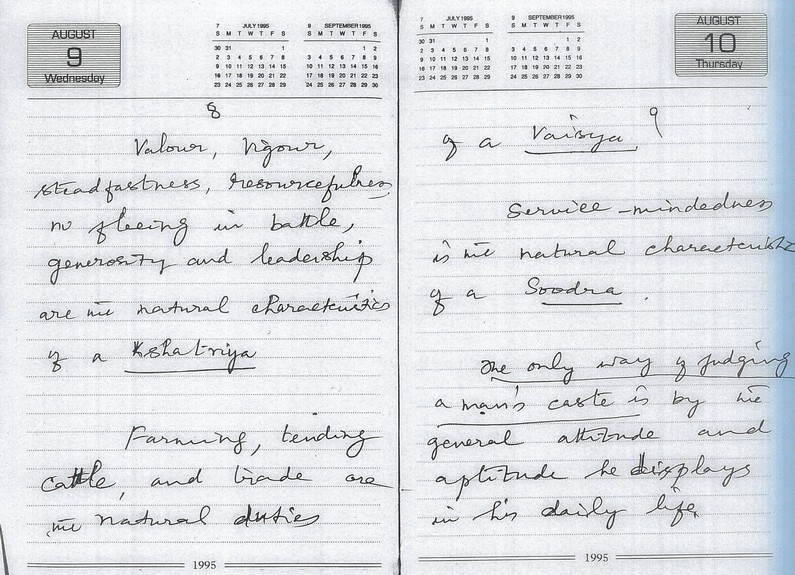 AUGUST
9
Wednesday
7 JULY 1995
S M T W T F S
30 31 1
2 3 4 5 6 7 8
9 10 11 12 13 14 15
16 17 18 19 20 21 22
23 24 25 26 27 28 29
9 SEPTEMBER 1995
S M T W T F S
1 2
3 4 5 6 7 8 9
10 11 12 13 14 15 16
17 18 19 20 21 22 23
24 25 26 27 28 29 30
8
Valour, Vigour,
steadfastness, resourcefulness,
no fleeing in battle,
generosity and leadership
are the natural characteristics
of a Kshatriya
Farming, tending
cattle, and trade are
the natural duties
1995
7 JULY 1995
S M T W T F S
30 31 1
2 3 4 5 6 7 8
9 10 11 12 13 14 15
16 17 18 19 20 21 22
23 24 25 26 27 28 29
9 SEPTEMBER 1995
S M T W T F S
1 2
3 4 5 6 7 8 9
10 11 12 13 14 15 16
17 18 19 20 21 22 23
24 25 26 27 28 29 30
AUGUST
10
Thursday
9
of a Vaisya.
Service-mindedness
is the natural characteristic
of a Soodra.
The only way of judging
a man's caste is by the
general attitude and
aptitude he displays
in his daily life.
1995